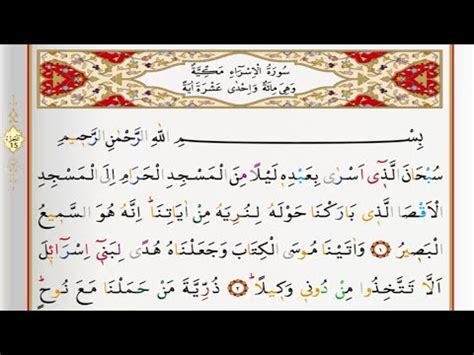 سُورَةُ الْاِسْرَٓاءِ مَكِّيَّةٌ
وَهِيَ مِائَةٌ وَاِحْدٰى عَشْرَةَ اٰيَةً
بِسْمِ اللّٰهِ الرَّحْمٰنِ الرَّحٖيمِ
سُبْحَانَ الَّذٖٓي اَسْرٰى بِعَبْدِهٖ لَيْلًا مِنَ الْمَسْجِدِ الْحَرَامِ اِلَى الْمَسْجِدِ
الْاَقْصَا الَّذٖي بَارَكْنَا حَوْلَهُ لِنُرِيَهُ مِنْ اٰيَاتِنَاؕ اِنَّهُ هُوَ السَّمٖيعُ
الْبَصٖيرُ ﴿١﴾ وَاٰتَيْنَا مُوسَى الْكِتَابَ وَجَعَلْنَاهُ هُدًى لِبَنٖٓي اِسْرَٓائٖلَ
اَلَّا تَتَّخِذُوا مِنْ دُونٖي وَكٖيلًاؕ ﴿٢﴾ ذُرِّيَّةَ مَنْ حَمَلْنَا مَعَ نُوحٍؕ